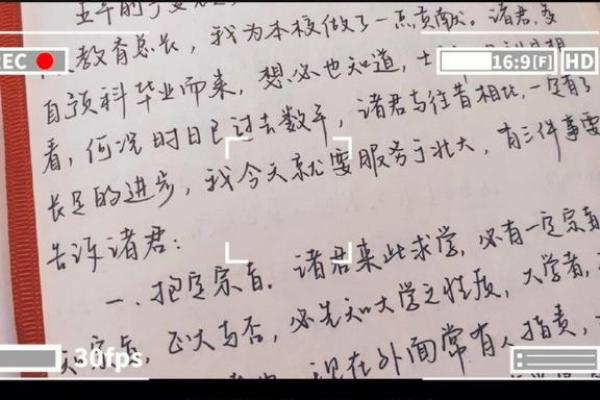 五年前
教育总长，我为本校做了一点贡献。诸君多
自预科毕业而来，想必也知道，士
看，何况时日已过去数年，诸君与往昔相比，一定有了
长足的进步，我今天就要服务于北大，有三件事要
告诉诸君：
一、抱定宗旨。诸君来此求学，必有一定宗旨
宗旨，正大与否，必先知大学之性质，大学者，
现在外面常有人指责，
REC
16:9[F]
HD
30fps